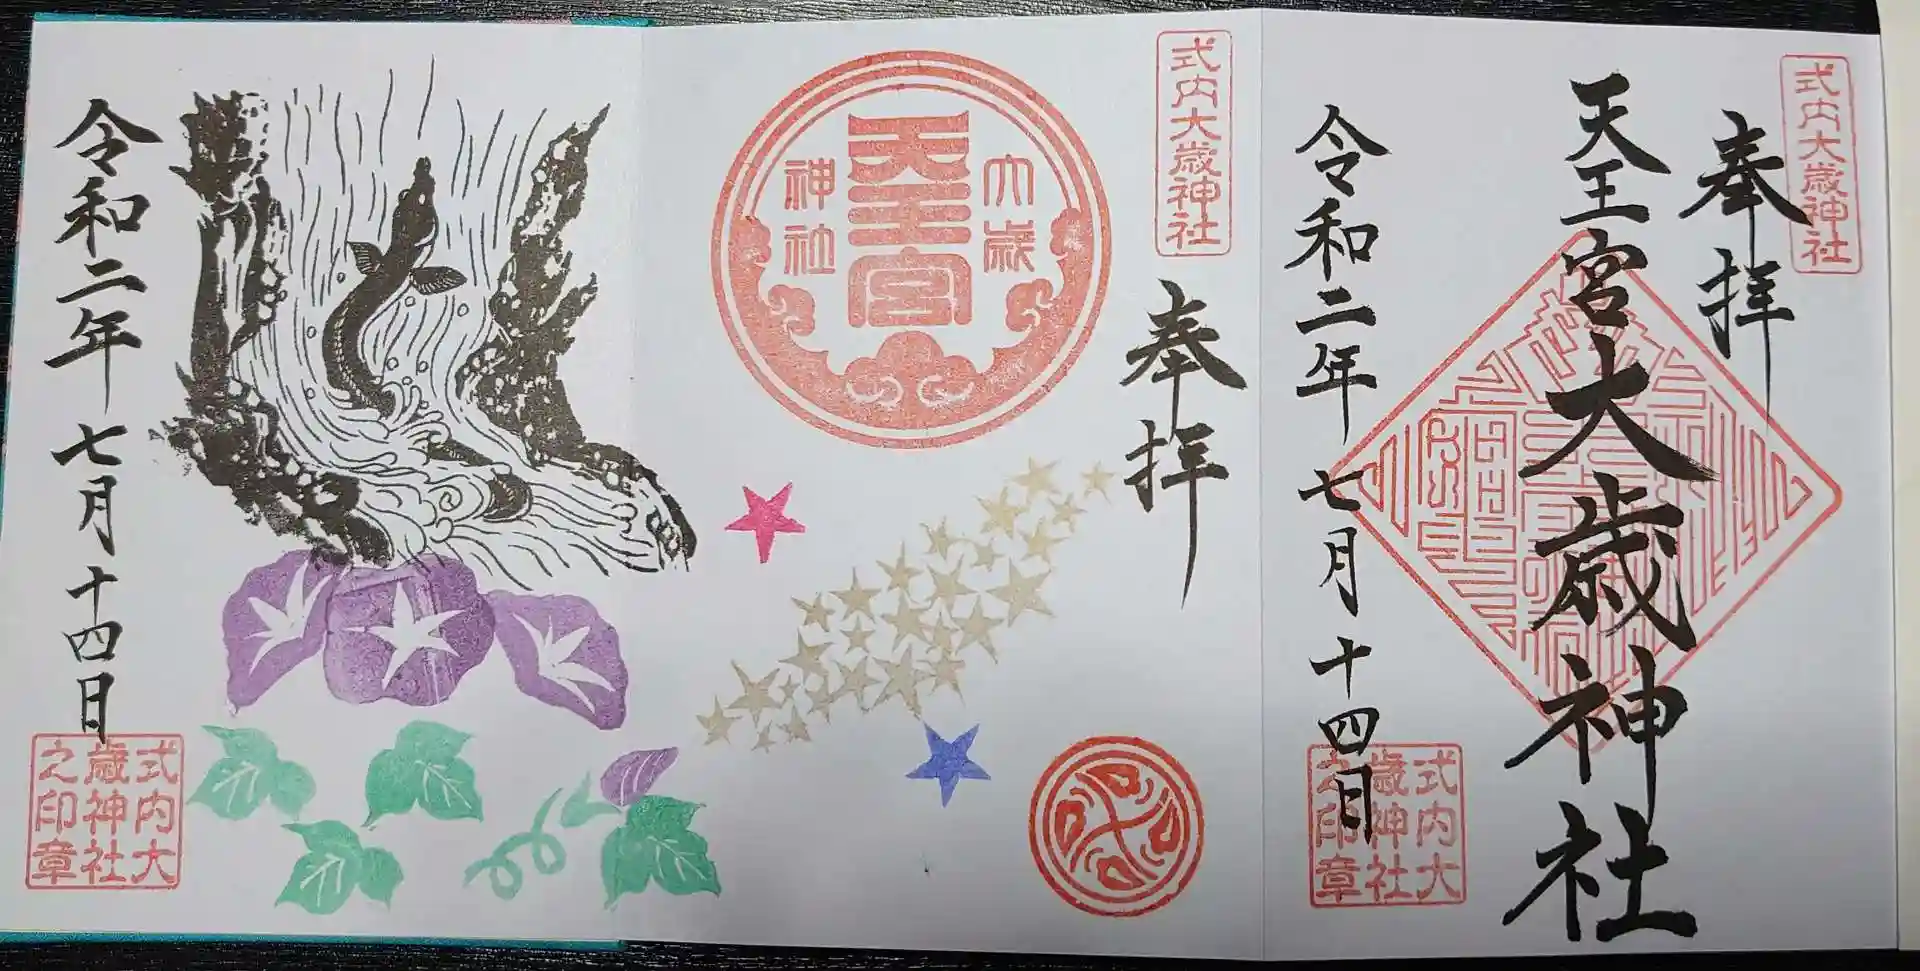 式内大歳神社
奉拝
天王宮大歳神社
令和二年七月十四日
式内大
歳神社
之印章
式内大歳神社
奉拝
大歳
天王宮
神社
令和二年七月十四日
式内大
歳神社
之印章